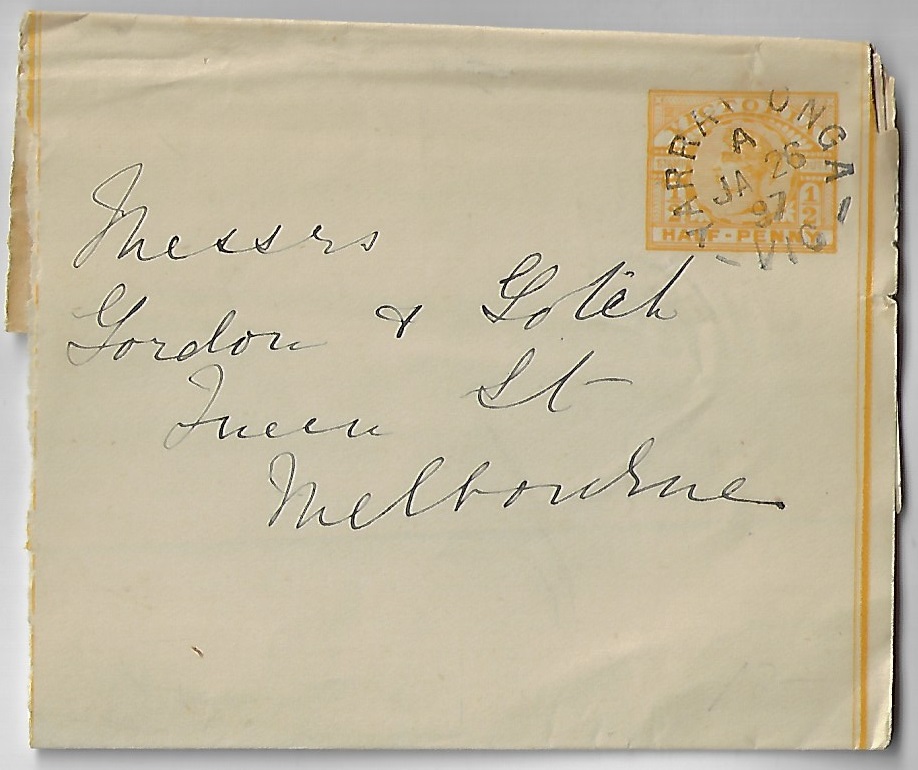 VICTORIA
YARRAWONGA
A
JA 26
97
VIC
1/2
HALF-PENNY
Messrs
Gordon & Gotch
Queen St
Melbourne